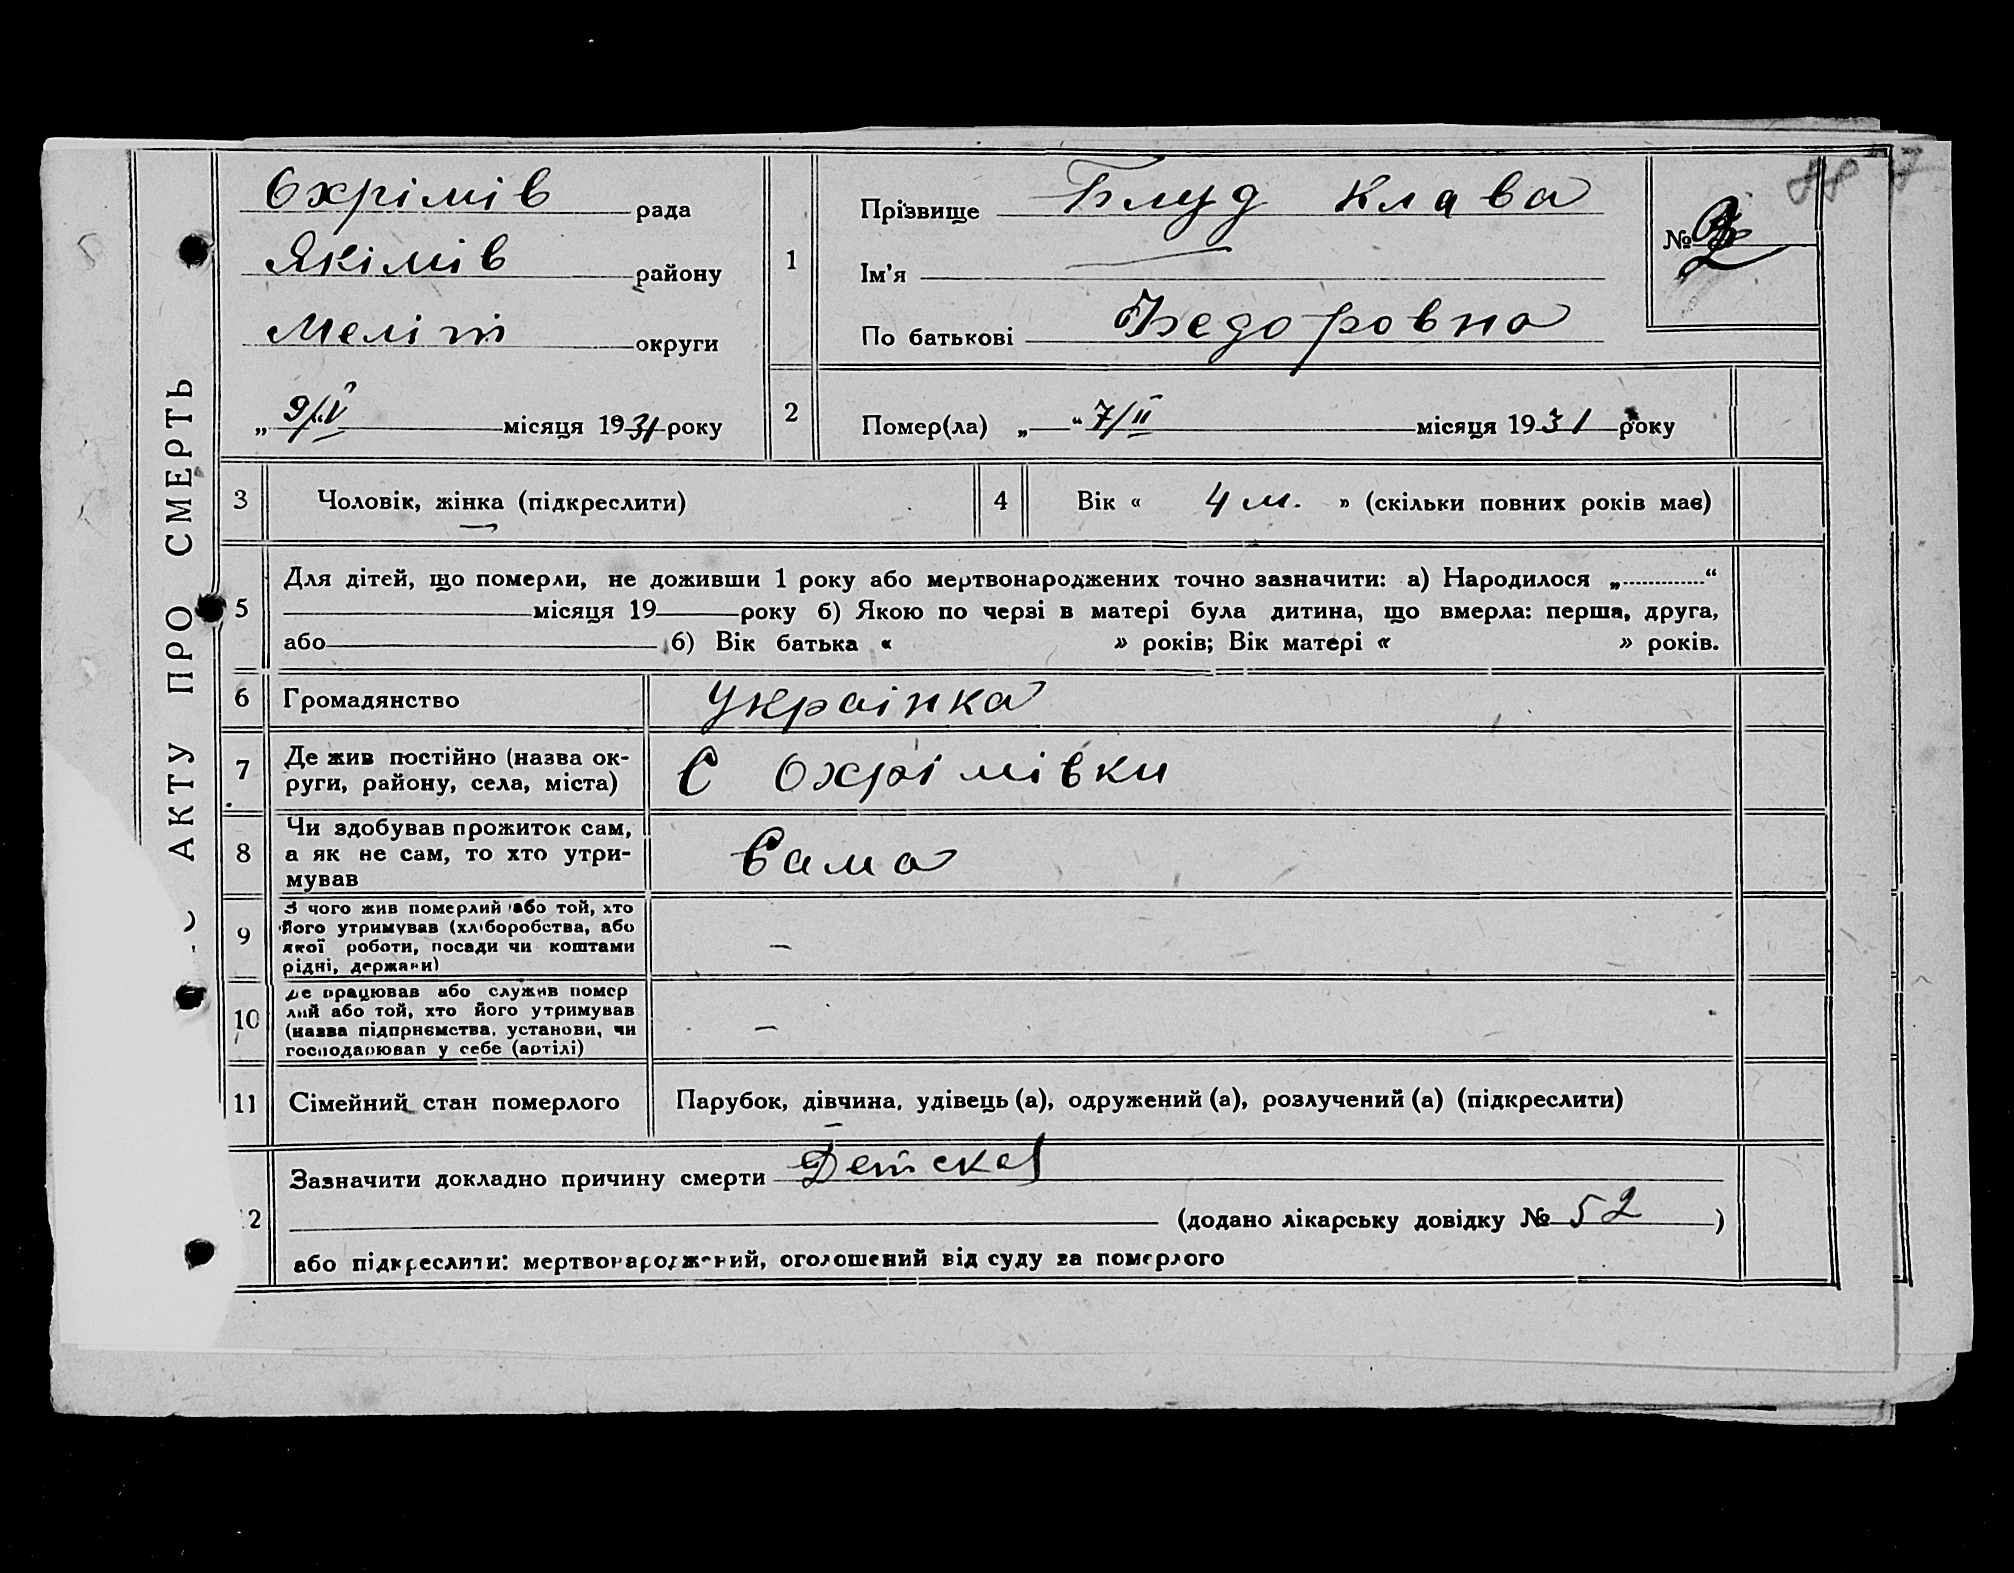 АКТУ ПРО СМЕРТЬ
Охрімів рада
Якімів району
Меліт округи
„ 9/IV місяця 1931 року
1
Прізвище Блуд Клава
Ім'я —
По батькові Федоровна
№ 2
2
Помер(ла) „ “ 7/II місяця 1931 року
3 Чоловік, жінка (підкреслити)
4 Вік « 4 м. » (скільки повних років має)
5 Для дітей, що померли, не доживши 1 року або мертвонароджених точно зазначити: а) Народилося „ “
місяця 19 року б) Якою по черзі в матері була дитина, що вмерла: перша, друга,
або б) Вік батька « » років; Вік матері « » років.
6 Громадянство Украінка
7 Де жив постійно (назва ок-
руги, району, села, міста) С Охрімівки
8 Чи здобував прожиток сам,
а як не сам, то хто утри-
мував Сама
9 З чого жив померлий або той, хто
його утримував (хліборобства, або
якої роботи, посади чи коштами
рідні, держави) –
10 Де працював або служив помер
лий або той, хто його утримував
(назва підприємства, установи, чи
господарював у себе (артілі) –
11 Сімейний стан померлого Парубок, дівчина, удівець (а), одружений (а), розлучений (а) (підкреслити)
12 Зазначити докладно причину смерти Детская
(додано лікарську довідку № 52 )
або підкреслити: мертвонароджений, оголошений від суду за померлого